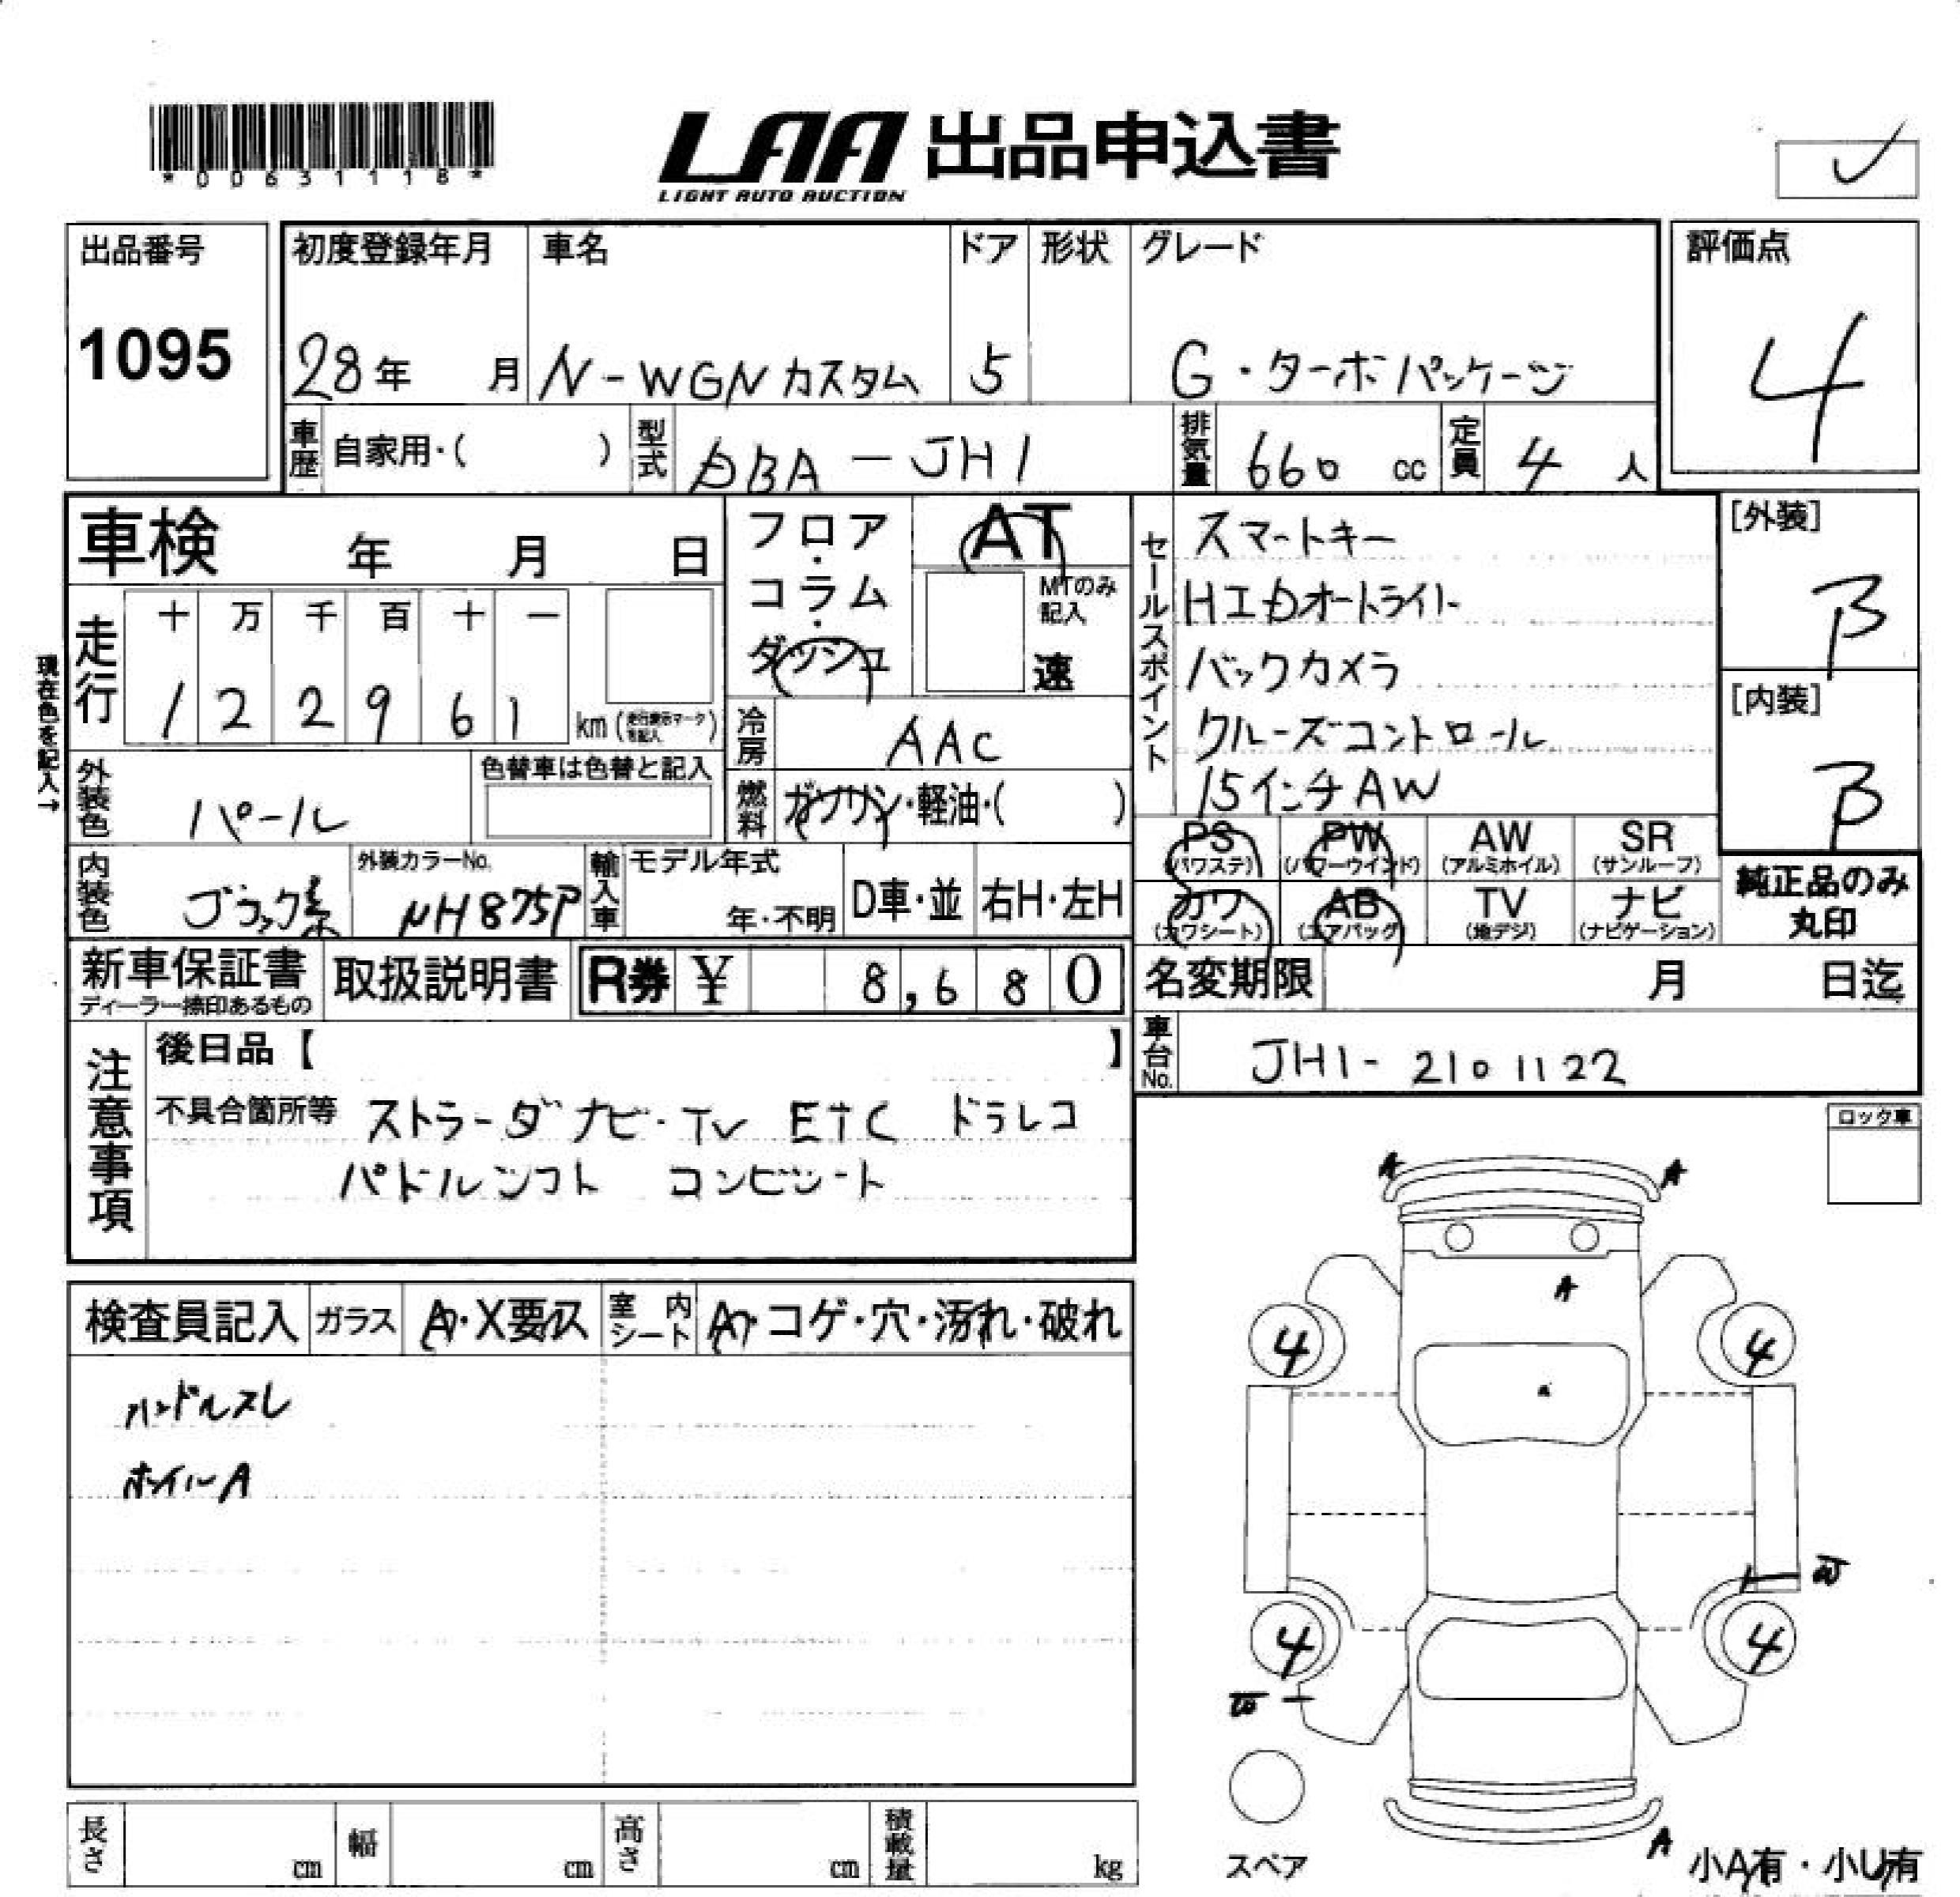 *00631118*
LAA 出品申込書
LIGHT AUTO AUCTION
出品番号
1095
初度登録年月
28年 月
車名
N-WGN カスタム
ドア
5
形状
グレード
G・ターボパッケージ
評価点
4
車歴
自家用・( )
型式
DBA-JH1
排気量
660 cc
定員
4 人
車検 年 月 日
フロア・コラム・ダッシュ
AT
MTのみ記入
速
セールスポイント
スマートキー
HIDオートライト
バックカメラ
クルーズコントロール
15インチAW
[外装]
B
[内装]
B
現在色を記入→
走行
十 万 千 百 十 一
1 2 2 9 6 1
km
冷房
AAC
外装色
パール
色替車は色替と記入
燃料
ガソリン・軽油・( )
PS
(パワステ)
PW
(パワーウインド)
AW
(アルミホイル)
SR
(サンルーフ)
内装色
ブラック系
外装カラーNo.
NH875P
輸入車
モデル年式
年・不明
D車・並
右H・左H
カワ
(カワシート)
AB
(エアバッグ)
TV
(地デジ)
ナビ
(ナビゲーション)
純正品のみ
丸印
新車保証書
ディーラー捺印あるもの
取扱説明書
R券 ¥ 8,680
名変期限 月 日迄
車台No.
JH1-2101122
注意事項
後日品【 】
不具合箇所等
ストラーダナビ・TV ETC ドラレコ
パドルシフト コンビシート
ロック車
A A
A
検査員記入
ガラス
A・X要ス
室内シート
A・コゲ・穴・汚れ・破れ
ハンドルスレ
ホイルA
4 4
4 4
スペア
A
小A有・小U有
長さ cm
幅 cm
高さ cm
積載量 kg